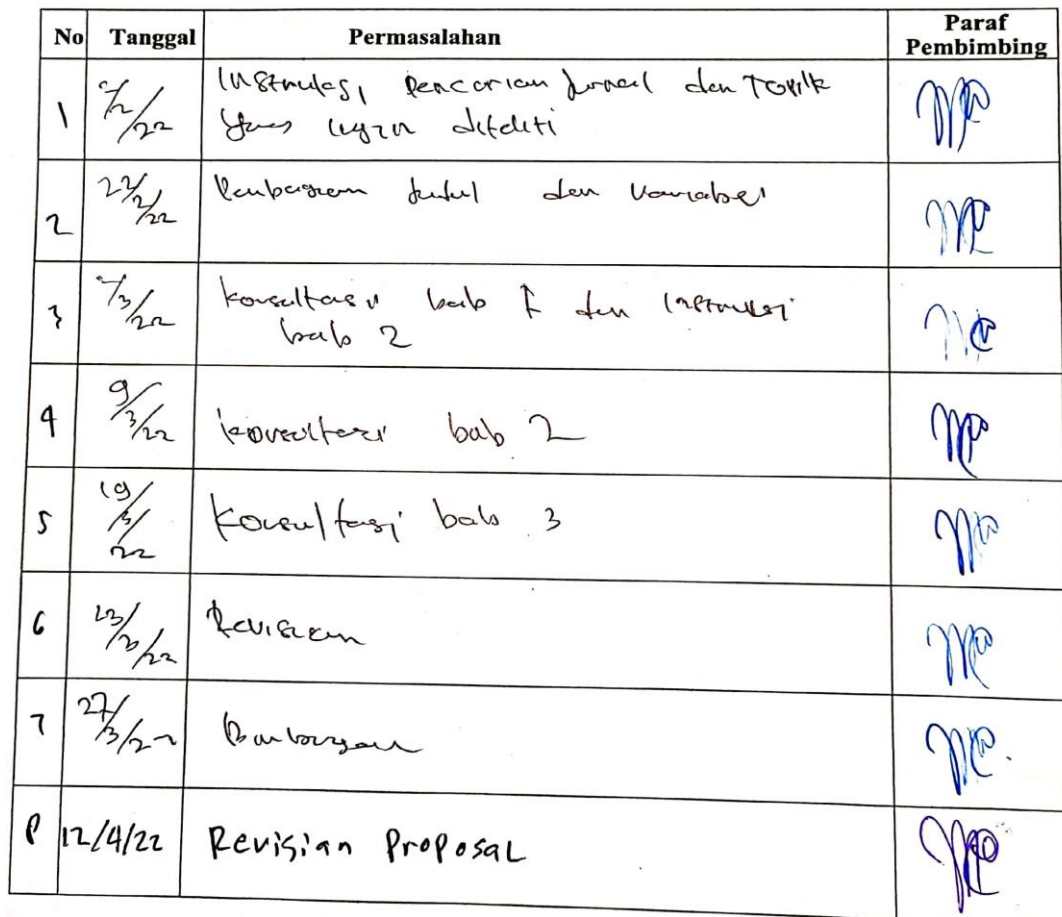 No Tanggal Permasalahan Paraf Pembimbing
1 2/2/22 Instruksi, Pencarian Jurnal dan Topik
yang ingin diteliti
2 22/2/22 Pembagian Judul dan Variabel
3 2/3/22 konsultasi bab 1 dan Instruksi
bab 2
4 9/3/22 konsultasi bab 2
5 19/3/22 Konsultasi bab 3
6 23/3/22 Revisian
7 27/3/22 Bimbingan
8 12/4/22 Revisian Proposal